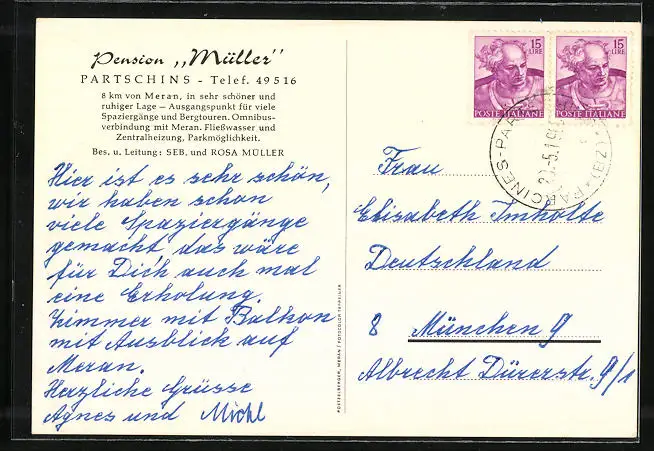 Pension „Müller"
PARTSCHINS - Telef. 49516
8 km von Meran, in sehr schöner und
ruhiger Lage — Ausgangspunkt für viele
Spaziergänge und Bergtouren. Omnibus-
verbindung mit Meran. Fließwasser und
Zentralheizung, Parkmöglichkeit.
Bes. u. Leitung: SEB. und ROSA MÜLLER
Hier ist es sehr schön,
wir haben schon
viele Spaziergänge
gemacht, das wäre
für Dich auch mal
eine Erholung.
Zimmer mit Balkon
mit Ausblick auf
Meran.
Herzliche Grüsse
Agnes und Michl
POETZELBERGER, MERAN / FOTOCOLOR
15
LIRE
POSTE ITALIANE
15
LIRE
POSTE ITALIANE
PARCINES-PAR
(BZ)
Frau
Elisabeth Imholte
Deutschland
8 München 9
Albrecht Dürerstr. 9/1